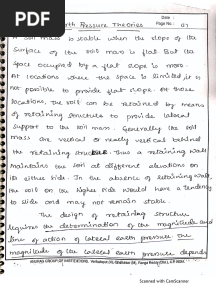 PDF
Date :
Page No. : 01
Earth Pressure Theories
A soil mass is stable when the slope of the
surface of the soil mass is flat But the
space occupied by a flat slope is more.
At locations where the space is limited it is
not possible to provide flat slope. At those
locations, the soil can be retained by means
of retaining structure to provide lateral
support to the soil mass. Generally the soil
mass are vertical or nearly vertical behind
the retaining structure. Thus a retaining wall
maintains the soil at different elevations on
its either side. In the absence of retaining wall,
the soil on the higher side would have a tendency
to slide and may not remain stable.
The design of retaining structure
requires the determination of the magnitude and
line of action of lateral earth pressure the
magnitude of the lateral earth pressure depends
Scanned with CamScanner